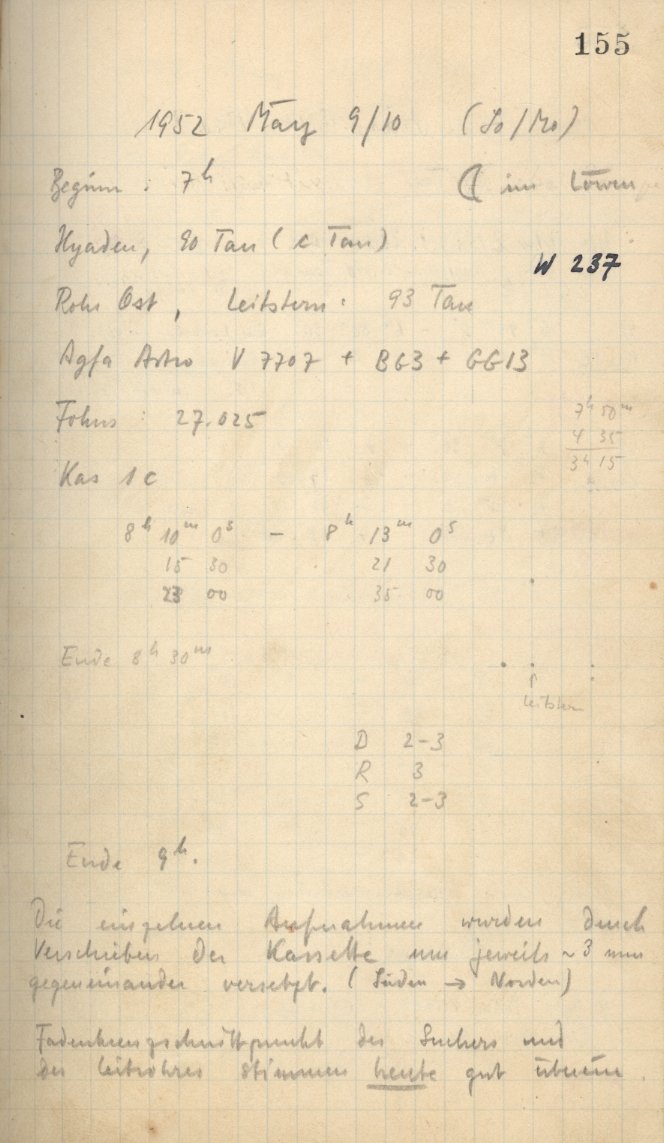 155
1952 März 9/10 (So/Mo)
Beginn : 7h ☾ im Löwen
Hyaden, 90 Tau (c Tau)
W 237
Rohr Ost, Leitstern : 93 Tau
Agfa Astro V 7707 + BG3 + GG13
Fokus : 27.025
7h 50m
4 35
3h 15
Kas 1c
8h 10m 0s - 8h 13m 0s
15 30 21 30
23 00 35 00
Ende 8h 30m
↑
Leitstern
D 2-3
R 3
S 2-3
Ende 9h.
Die einzelnen Aufnahmen wurden durch
Verschieben der Kassette um jeweils ~3 mm
gegeneinander versetzt. (Süden → Norden)
Fadenkreuzschnittpunkt des Suchers und
des Leitrohres stimmen heute gut überein.